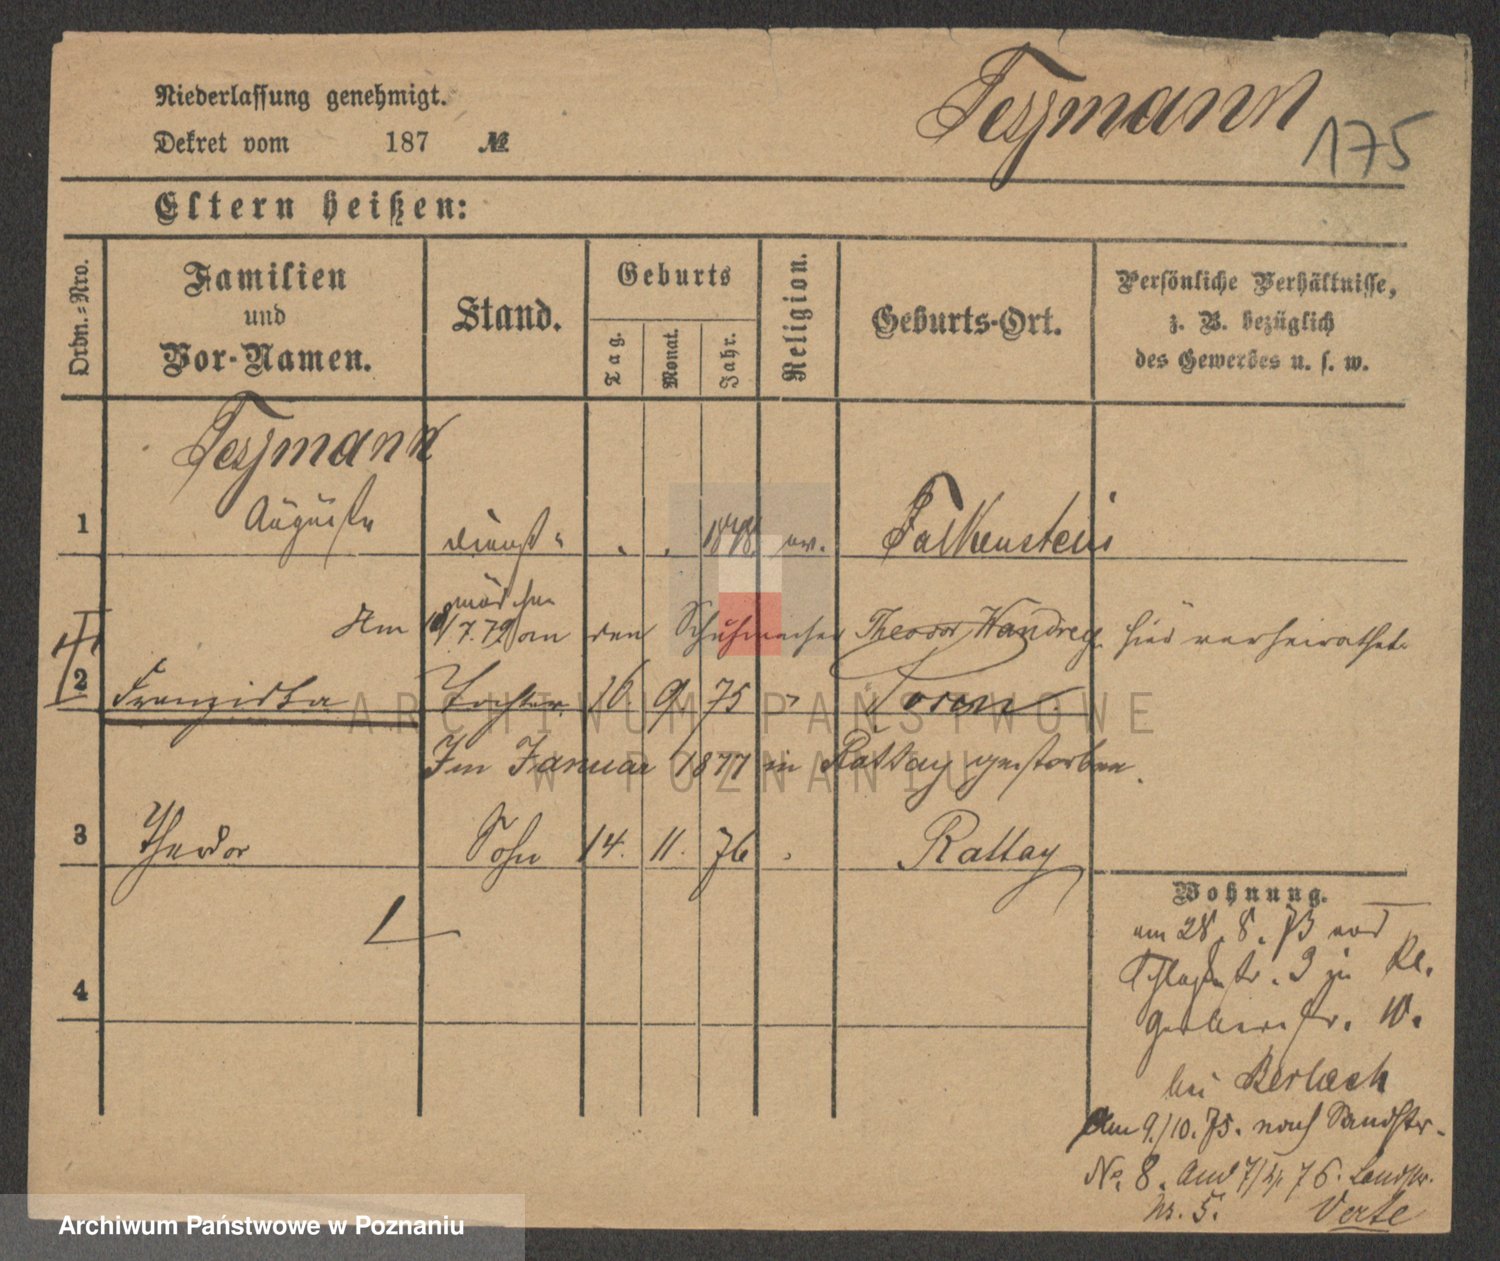 Niederlassung genehmigt.
Dekret vom 187 №
Tessmann
175
Eltern heißen:
Ordn.-Nro.
Familien
und
Vor-Namen.
Stand.
Geburts
Tag.
Monat.
Jahr.
Religion.
Geburts-Ort.
Persönliche Verhältnisse,
z. B. bezüglich
des Gewerbes u. s. w.
Tessmann
1 Auguste Dienst- ev. Falkenstein
mädchen
Am 7.79 an den Schuhmacher Theodor Wandrey hier verheirathet.
2 Franziska Tochter 16. 9. 75 " Posen
Im Januar 1877 in Rattay gestorben.
3 Theodor Sohn 14. 11. 76 " Rattay
4
Wohnung.
am 28. 8. 73 von
3 zu Kl.
Gerberstr. 10.
bei Berlach
Am 9./10. 75. nach Sandstr.
No. 8. And 76. Landstr.
Nr. 5. Verte
ARCHIWUM PAŃSTWOWE
W POZNANIU
Archiwum Państwowe w Poznaniu